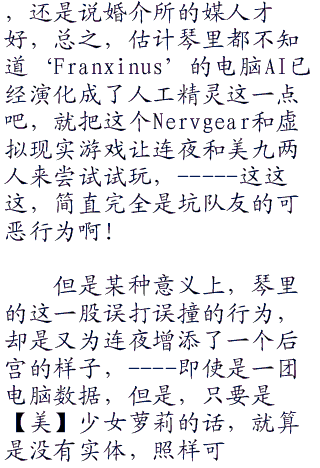 ，还是说婚介所的媒人才
好，总之，估计琴里都不知
道‘Franxinus’的电脑AI已
经演化成了人工精灵这一点
吧，就把这个Nervgear和虚
拟现实游戏让连夜和美九两
人来尝试试玩，-----这这
这，简直完全是坑队友的可
恶行为啊！
但是某种意义上，琴里
的这一股误打误撞的行为，
却是又为连夜增添了一个后
宫的样子，----即使是一团
电脑数据，但是，只要是
【美】少女萝莉的话，就算
是没有实体，照样可